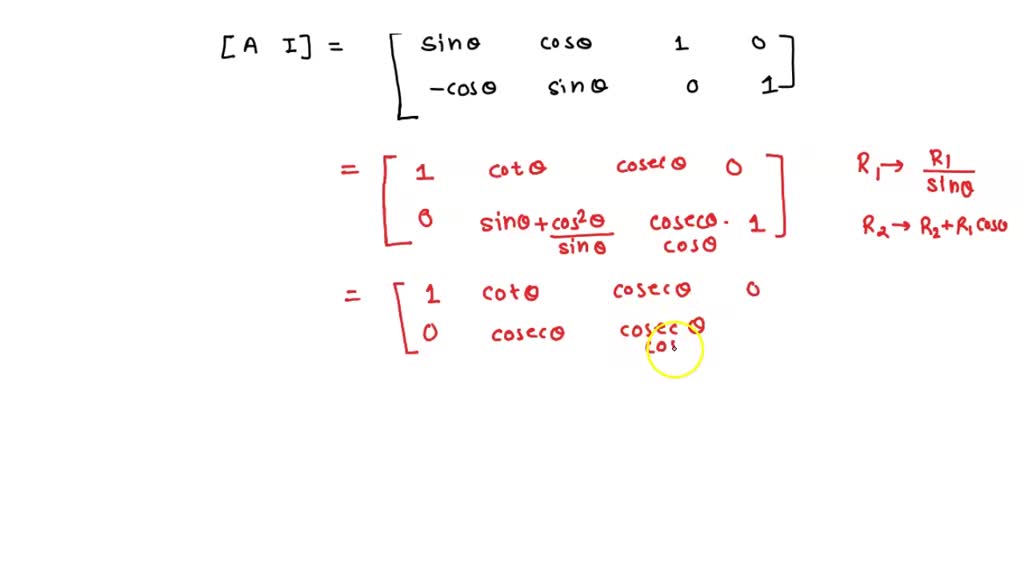 [A I] = [ sinθ cosθ 1 0 ]
-cosθ sinθ 0 1
= [ 1 cotθ cosecθ 0 ] R1→ R1/sinθ
0 sinθ+cos²θ/sinθ cosecθ. cosθ 1 R2→R2+R1cosθ
= [ 1 cotθ cosecθ 0
0 cosecθ cosecθ cos